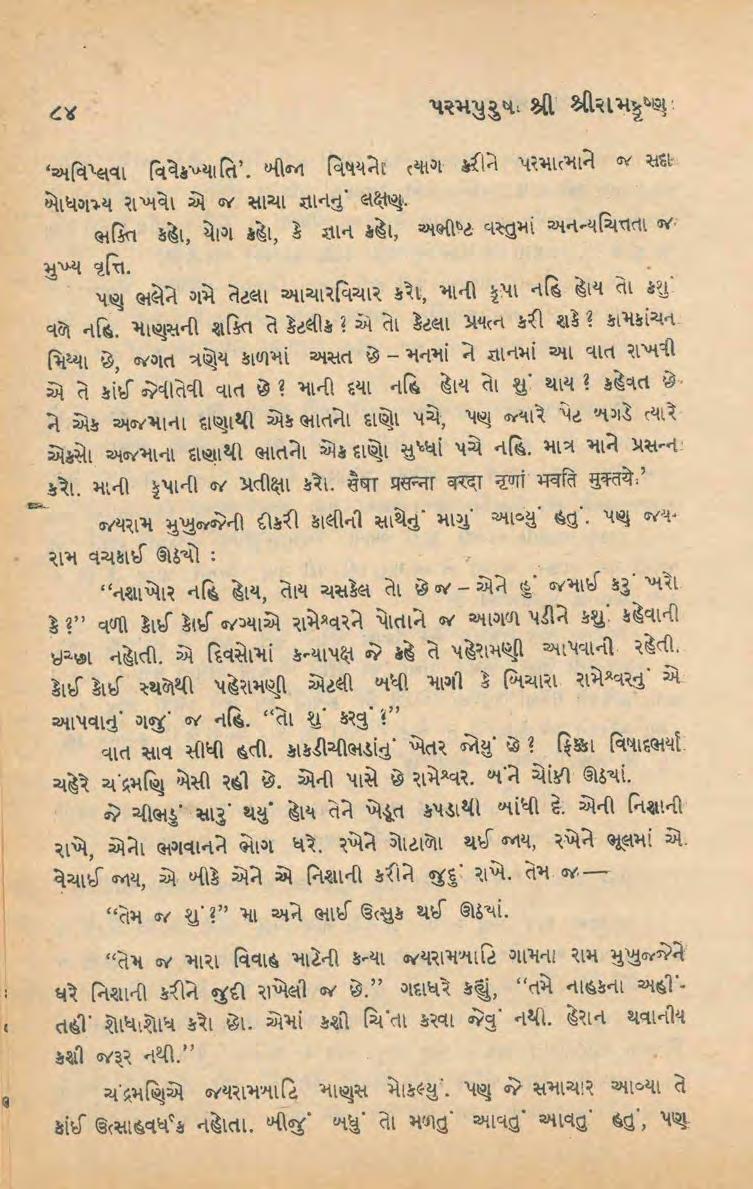 ૮૪ પરમપુરુષ શ્રી શ્રીરામકૃષ્ણ
‘અવિપ્લવા વિવેકખ્યાતિ’. બીજા વિષયનો ત્યાગ કરીને પરમાત્માને જ સદા
બોધગમ્ય રાખવો એ જ સાચા જ્ઞાનનું લક્ષણ.
ભક્તિ કહો, યોગ કહો, કે જ્ઞાન કહો, અભીષ્ટ વસ્તુમાં અનન્યચિત્તતા જ
મુખ્ય વૃત્તિ.
પણ ભલેને ગમે તેટલા આચારવિચાર કરો, માની કૃપા નહિ હોય તો કશું
વળે નહિ. માણસની શક્તિ તે કેટલીક ? એ તો કેટલા પ્રયત્ન કરી શકે ? કામકાંચન
મિથ્યા છે, જગત ત્રણેય કાળમાં અસત છે – મનમાં ને જ્ઞાનમાં આ વાત રાખવી
એ તે કાંઈ જેવીતેવી વાત છે ? માની દયા નહિ હોય તો શું થાય ? કહેવત છે
ને એક અજમાના દાણાથી એક ભાતનો દાણો પચે, પણ જ્યારે પેટ બગડે ત્યારે
એકસો અજમાના દાણાથી ભાતનો એક દાણો સુધ્ધાં પચે નહિ. માત્ર માને પ્રસન્ન
કરો. માની કૃપાની જ પ્રતીક્ષા કરો. सैषा प्रसन्ना वरदा नृणां भवति मुक्तये.’
જયરામ મુખુજ્જેની દીકરી કાલીની સાથેનું માગું આવ્યું હતું. પણ જય-
રામ વચકાઈ ઊઠ્યો :
“નશાખોર નહિ હોય, તોય ચસકેલ તો છે જ – એને હું જમાઈ કરું ખરો
કે ?” વળી કોઈ કોઈ જગ્યાએ રામેશ્વરને પોતાને જ આગળ પડીને કશું કહેવાની
ઇચ્છા નહોતી. એ દિવસોમાં કન્યાપક્ષ જે કહે તે પહેરામણી આપવાની રહેતી.
કોઈ કોઈ સ્થળેથી પહેરામણી એટલી બધી માગી કે બિચારા રામેશ્વરનું એ
આપવાનું ગજું જ નહિ. “તો શું કરવું ?”
વાત સાવ સીધી હતી. કાકડીચીભડાંનું ખેતર જોયું છે ? ફિક્કા વિષાદભર્યા
ચહેરે ચંદ્રમણિ બેસી રહી છે. એની પાસે છે રામેશ્વર. બંને ચોંકી ઊઠયાં.
જે ચીભડું સારું થયું હોય તેને ખેડૂત કપડાથી બાંધી દે. એની નિશાની
રાખે, એનો ભગવાનને ભોગ ધરે. રખેને ગોટાળો થઈ જાય, રખેને ભૂલમાં એ
વેચાઈ જાય, એ બીકે એને એ નિશાની કરીને જુદું રાખે. તેમ જ —
“તેમ જ શું ?” મા અને ભાઈ ઉત્સુક થઈ ઊઠયાં.
“તેમ જ મારા વિવાહ માટેની કન્યા જયરામબાટિ ગામના રામ મુખુજ્જેને
ઘરે નિશાની કરીને જુદી રાખેલી જ છે.” ગદાધરે કહ્યું, “તમે નાહકના અહીં-
તહીં શોધાશોધ કરો છો. એમાં કશી ચિંતા કરવા જેવું નથી. હેરાન થવાનીય
કશી જરૂર નથી.”
ચંદ્રમણિએ જયરામબાટિ માણસ મોકલ્યું. પણ જે સમાચાર આવ્યા તે
કાંઈ ઉત્સાહવર્ધક નહોતા. બીજું બધું તો મળતું આવતું આવતું હતું, પણ